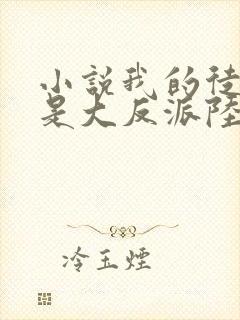 小說我的徒
是大反派陸
冷玉煙